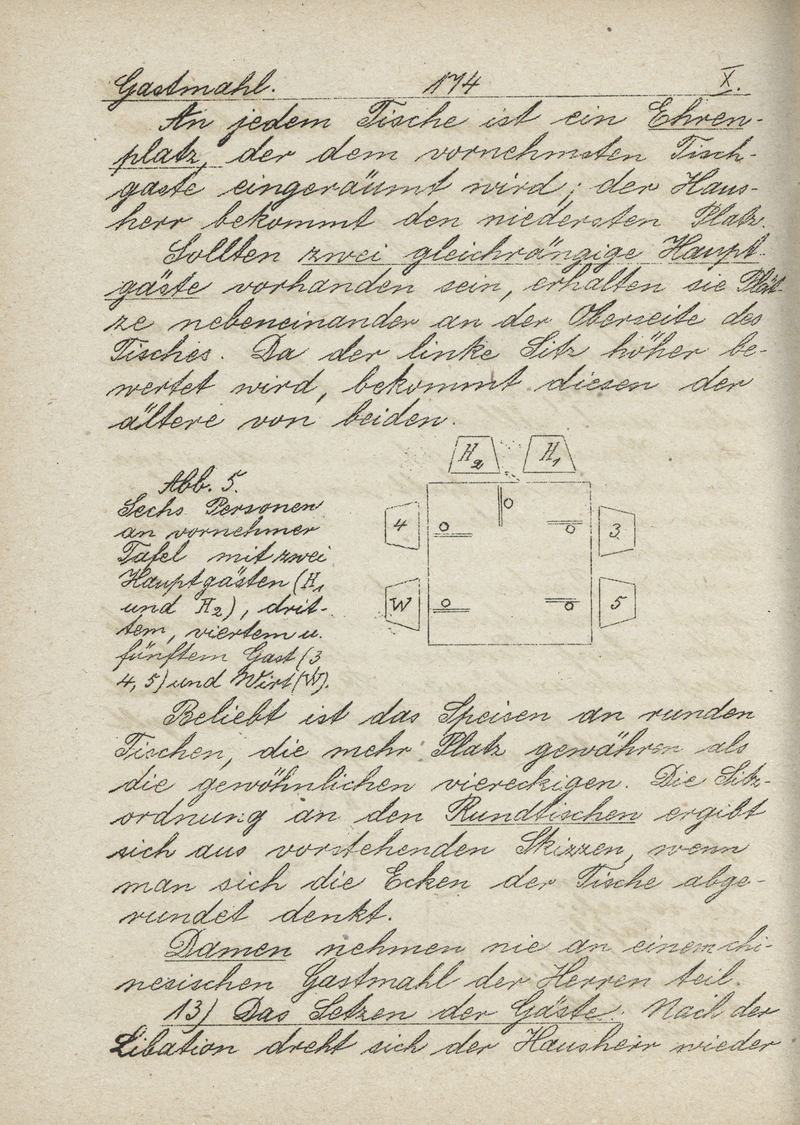 Gastmahl. 174 X.
An jedem Tische ist ein Ehren-
platz, der dem vornehmsten Tisch-
gaste eingeräumt wird; der Haus-
herr bekommt den niedersten Platz.
Sollten zwei gleichrängige Haupt-
gäste vorhanden sein, erhalten sie Plät-
ze nebeneinander an der Oberseite des
Tisches. Da der linke Sitz höher be-
wertet wird, bekommt diesen der
ältere von beiden.
H2 H1
Abb. 5.
Sechs Personen
an vornehmer
Tafel mit zwei
Hauptgästen (H1
und H2), drit-
tem, viertem u.
fünftem Gast (3
4, 5) und Wirt (W).
4 3
W 5
Beliebt ist das Speisen an runden
Tischen, die mehr Platz gewähren als
die gewöhnlichen viereckigen. Die Sitz-
ordnung an den Rundtischen ergibt
sich aus vorstehenden Skizzen, wenn
man sich die Ecken der Tische abge-
rundet denkt.
Damen nehmen nie an einem chi-
nesischen Gastmahl der Herren teil.
13) Das Setzen der Gäste. Nach der
Libation dreht sich der Hausherr wieder